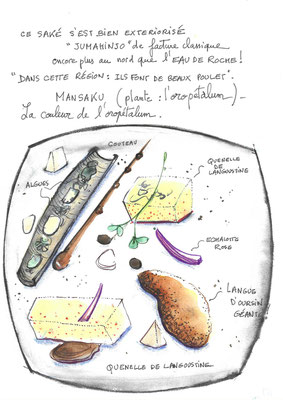 CE SAKÉ S'EST BIEN EXTERIORISÉ
"JUMAHINSO" de facture classique
encore plus au nord que L'EAU DE ROCHE!
"DANS CETTE RÉGION : ILS FONT DE BEAUX POULET".
MANSAKU (plante : l'oropetalum) –
La couleur de l'oropétalum.
COUTEAU
QUENELLE DE
LANGOUSTINE
ALGUES
ECHALOTE
ROSE
LANGUE
D'OURSIN
GÉANT
QUENELLE DE LANGOUSTINE